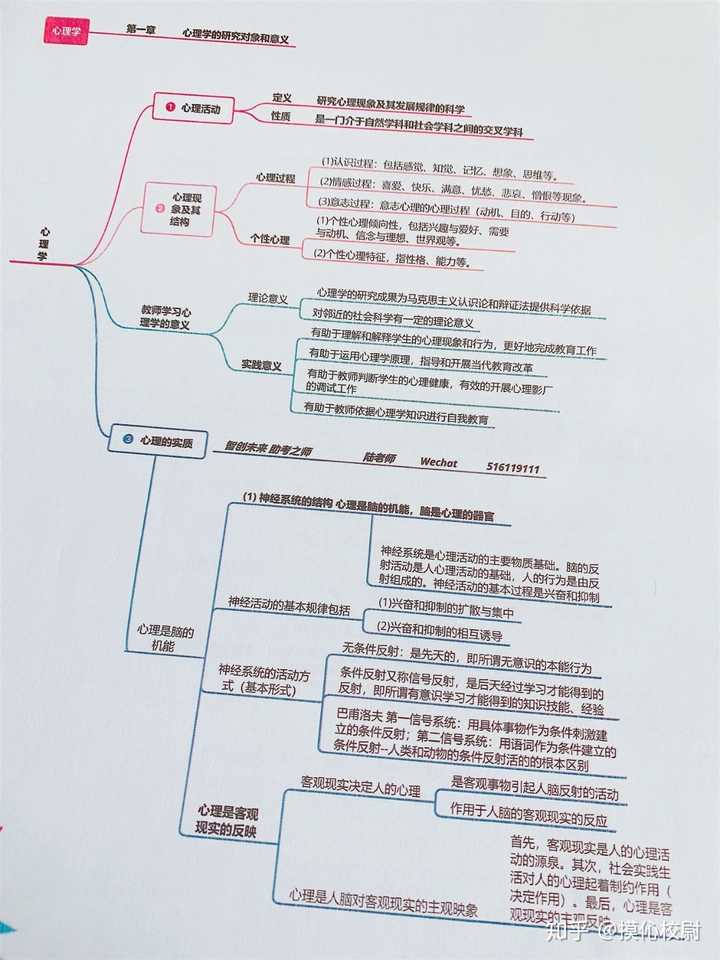 心理学 第一章 心理学的研究对象和意义
心理学
❶ 心理活动
定义 研究心理现象及其发展规律的科学
性质 是一门介于自然学科和社会学科之间的交叉学科
❷ 心理现
象及其
结构
心理过程
(1)认识过程：包括感觉、知觉、记忆、想象、思维等。
(2)情感过程：喜爱、快乐、满意、忧愁、悲哀、憎恨等现象。
(3)意志过程：意志心理的心理过程（动机、目的、行动等）
个性心理
(1)个性心理倾向性，包括兴趣与爱好、需要
与动机、信念与理想、世界观等。
(2)个性心理特征，指性格、能力等。
教师学习心
理学的意义
理论意义
心理学的研究成果为马克思主义认识论和辩证法提供科学依据
对邻近的社会科学有一定的理论意义
实践意义
有助于理解和解释学生的心理现象和行为，更好地完成教育工作
有助于运用心理学原理，指导和开展当代教育改革
有助于教师判断学生的心理健康，有效的开展心理影厂
的调试工作
有助于教师依据心理学知识进行自我教育
❸ 心理的实质
智创未来 助考之师 陆老师 Wechat 516119111
心理是脑的
机能
(1) 神经系统的结构 心理是脑的机能，脑是心理的器官
神经系统是心理活动的主要物质基础。脑的反
射活动是人心理活动的基础，人的行为是由反
射组成的。神经活动的基本过程是兴奋和抑制
神经活动的基本规律包括
(1)兴奋和抑制的扩散与集中
(2)兴奋和抑制的相互诱导
神经系统的活动方
式（基本形式）
无条件反射：是先天的，即所谓无意识的本能行为
条件反射又称信号反射，是后天经过学习才能得到的
反射，即所谓有意识学习才能得到的知识技能、经验
巴甫洛夫 第一信号系统：用具体事物作为条件刺激建
立的条件反射；第二信号系统：用语词作为条件建立的
条件反射--人类和动物的条件反射活的的根本区别
心理是客观
现实的反映
客观现实决定人的心理
是客观事物引起人脑反射的活动
作用于人脑的客观现实的反应
心理是人脑对客观现实的主观映象
首先，客观现实是人的心理活
动的源泉。其次，社会实践生
活对人的心理起着制约作用（
决定作用）。最后，心理是客
观现实的主观反映
知乎 @摸伈校尉